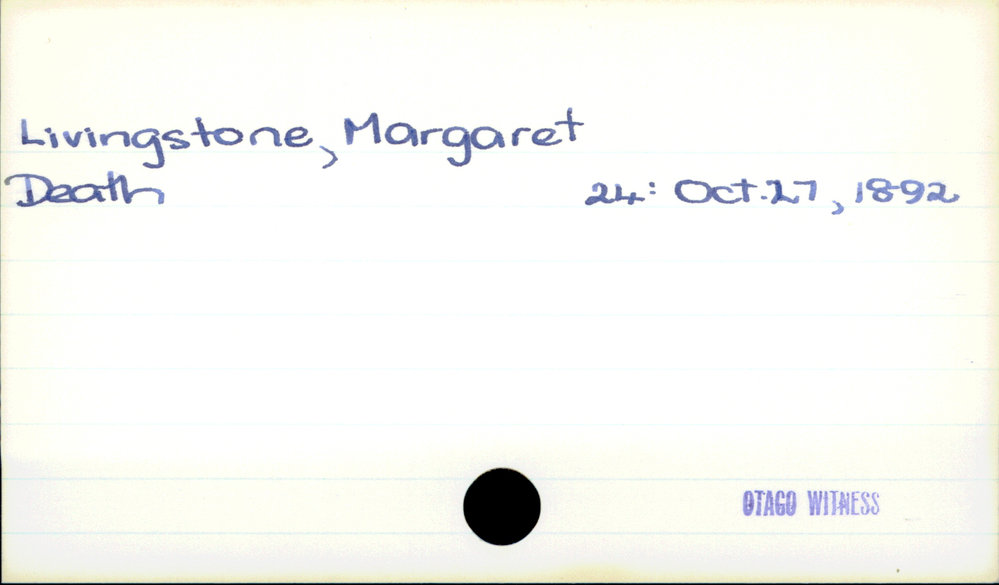 Livingstone, Margaret
Death 24: Oct. 27, 1892
OTAGO WITNESS